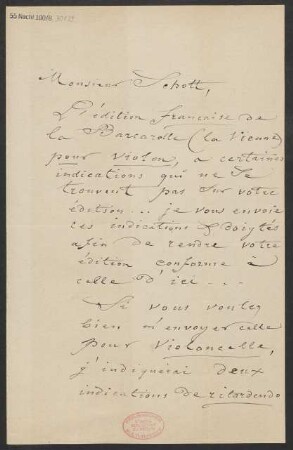 55 Nachl 100/B,
Monsieur Schott,
L'édition française de
la Barcarolle (la Vienne)
pour violon, a certaines
indications qui ne se
trouvent pas sur votre
édition... je vous envoie
ces indications & doigtés
afin de rendre votre
édition conforme à
celle d'ici...
Si vous voulez
bien m'envoyer celle
pour violoncelle,
j'indiquerai deux
indications de ritardendo